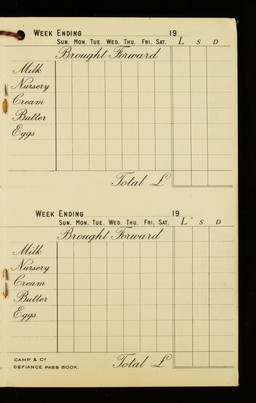 WEEK ENDING 19
SUN. MON. TUE. WED. THU. FRI. SAT. L S D
Brought Forward
Milk
Nursery
Cream
Butter
Eggs
Total £
WEEK ENDING 19
SUN. MON. TUE. WED. THU. FRI. SAT. L S D
Brought Forward
Milk
Nursery
Cream
Butter
Eggs
CAMP & CY Total £
DEFIANCE PASS BOOK.